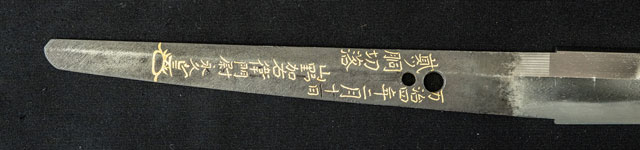 万治四年二月十日
貳ツ胴切落
山野加右衛門尉永久